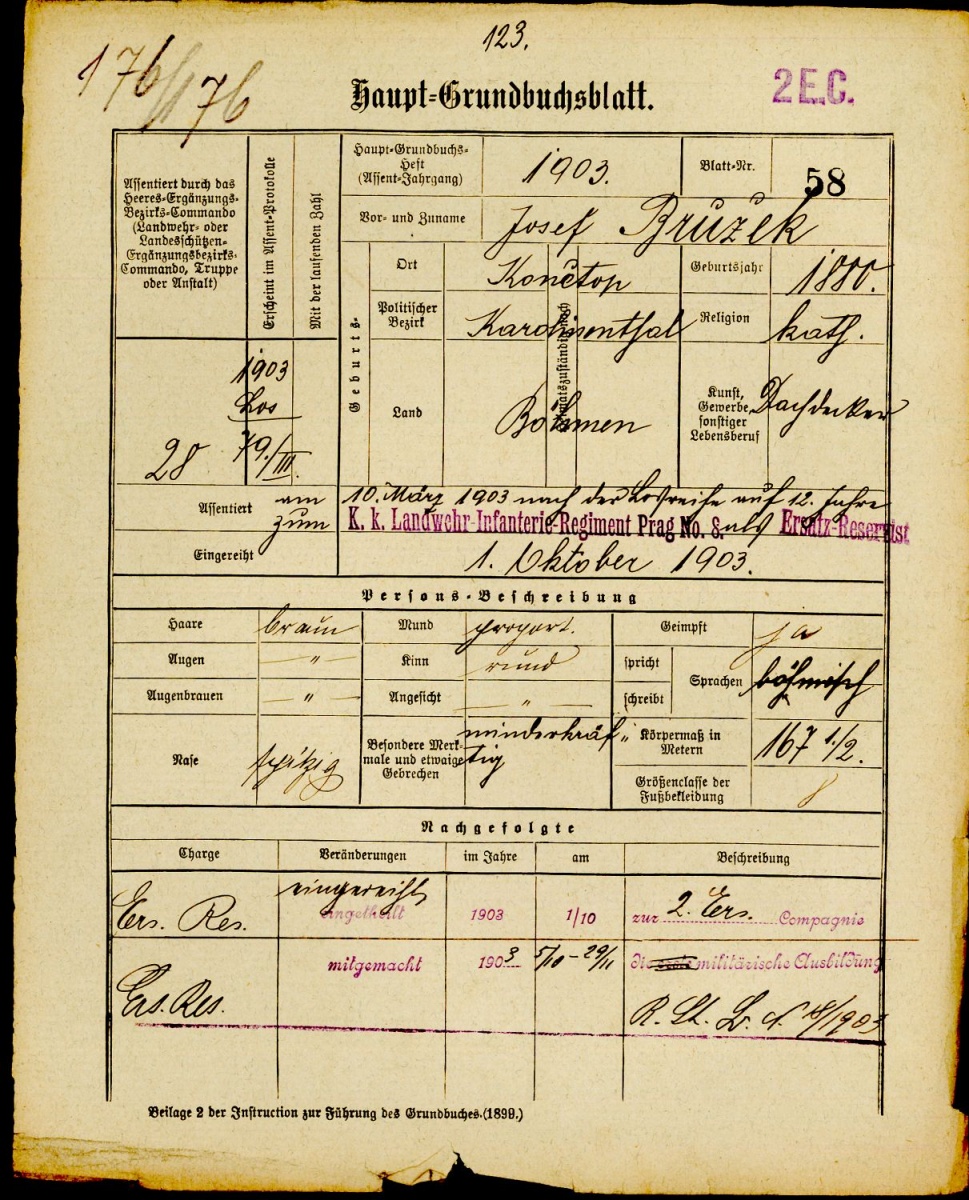 123.
176/176
Haupt-Grundbuchsblatt.
2 E.C.
Assentiert durch das
Heeres-Ergänzungs-
Bezirks-Commando
(Landwehr- oder
Landesschützen-
Ergänzungsbezirks-
Commando, Truppe
oder Anstalt)
Erscheint im Assent-Protokolle
Mit der laufenden Zahl
Haupt-Grundbuchs-
Heft
(Assent-Jahrgang)
1903.
Blatt-Nr.
58
Vor- und Zuname
Josef Bružek
Geburts-
Ort
Konětop
Geburtsjahr
1880.
Politischer
Bezirk
Karolinenthal
Heimatszuständig nach
Religion
kath.
Land
Böhmen
Kunst,
Gewerbe,
sonstiger
Lebensberuf
Dachdecker
28
1903
Los
79./III.
Assentiert
am
10. März 1903 nach der Losreihe auf 12. Jahre
zum
K. k. Landwehr-Infanterie-Regiment Prag No. 8. als Ersatz-Reservist
Eingereiht
1. Oktober 1903.
Persons-Beschreibung
Haare braun
Mund proport.
Geimpft ja
Augen "
Kinn rund
spricht
schreibt
Sprachen
böhmisch
Augenbrauen "
Angesicht "
Nase spitzig
Besondere Merk-
male und etwaige
Gebrechen
minderkräf-
tig
Körpermaß in
Metern
167 1/2.
Größenclasse der
Fußbekleidung
8
Nachgefolgte
Charge Veränderungen im Jahre am Beschreibung
eingereiht
Ers. Res. eingetheilt 1903 1/10 zur 2. Ers. Compagnie
mitgemacht 1903 5/10 - 29/11 die militärische Ausbildung
Ers. Res.
Beilage 2 der Instruction zur Führung des Grundbuches. (1899.)